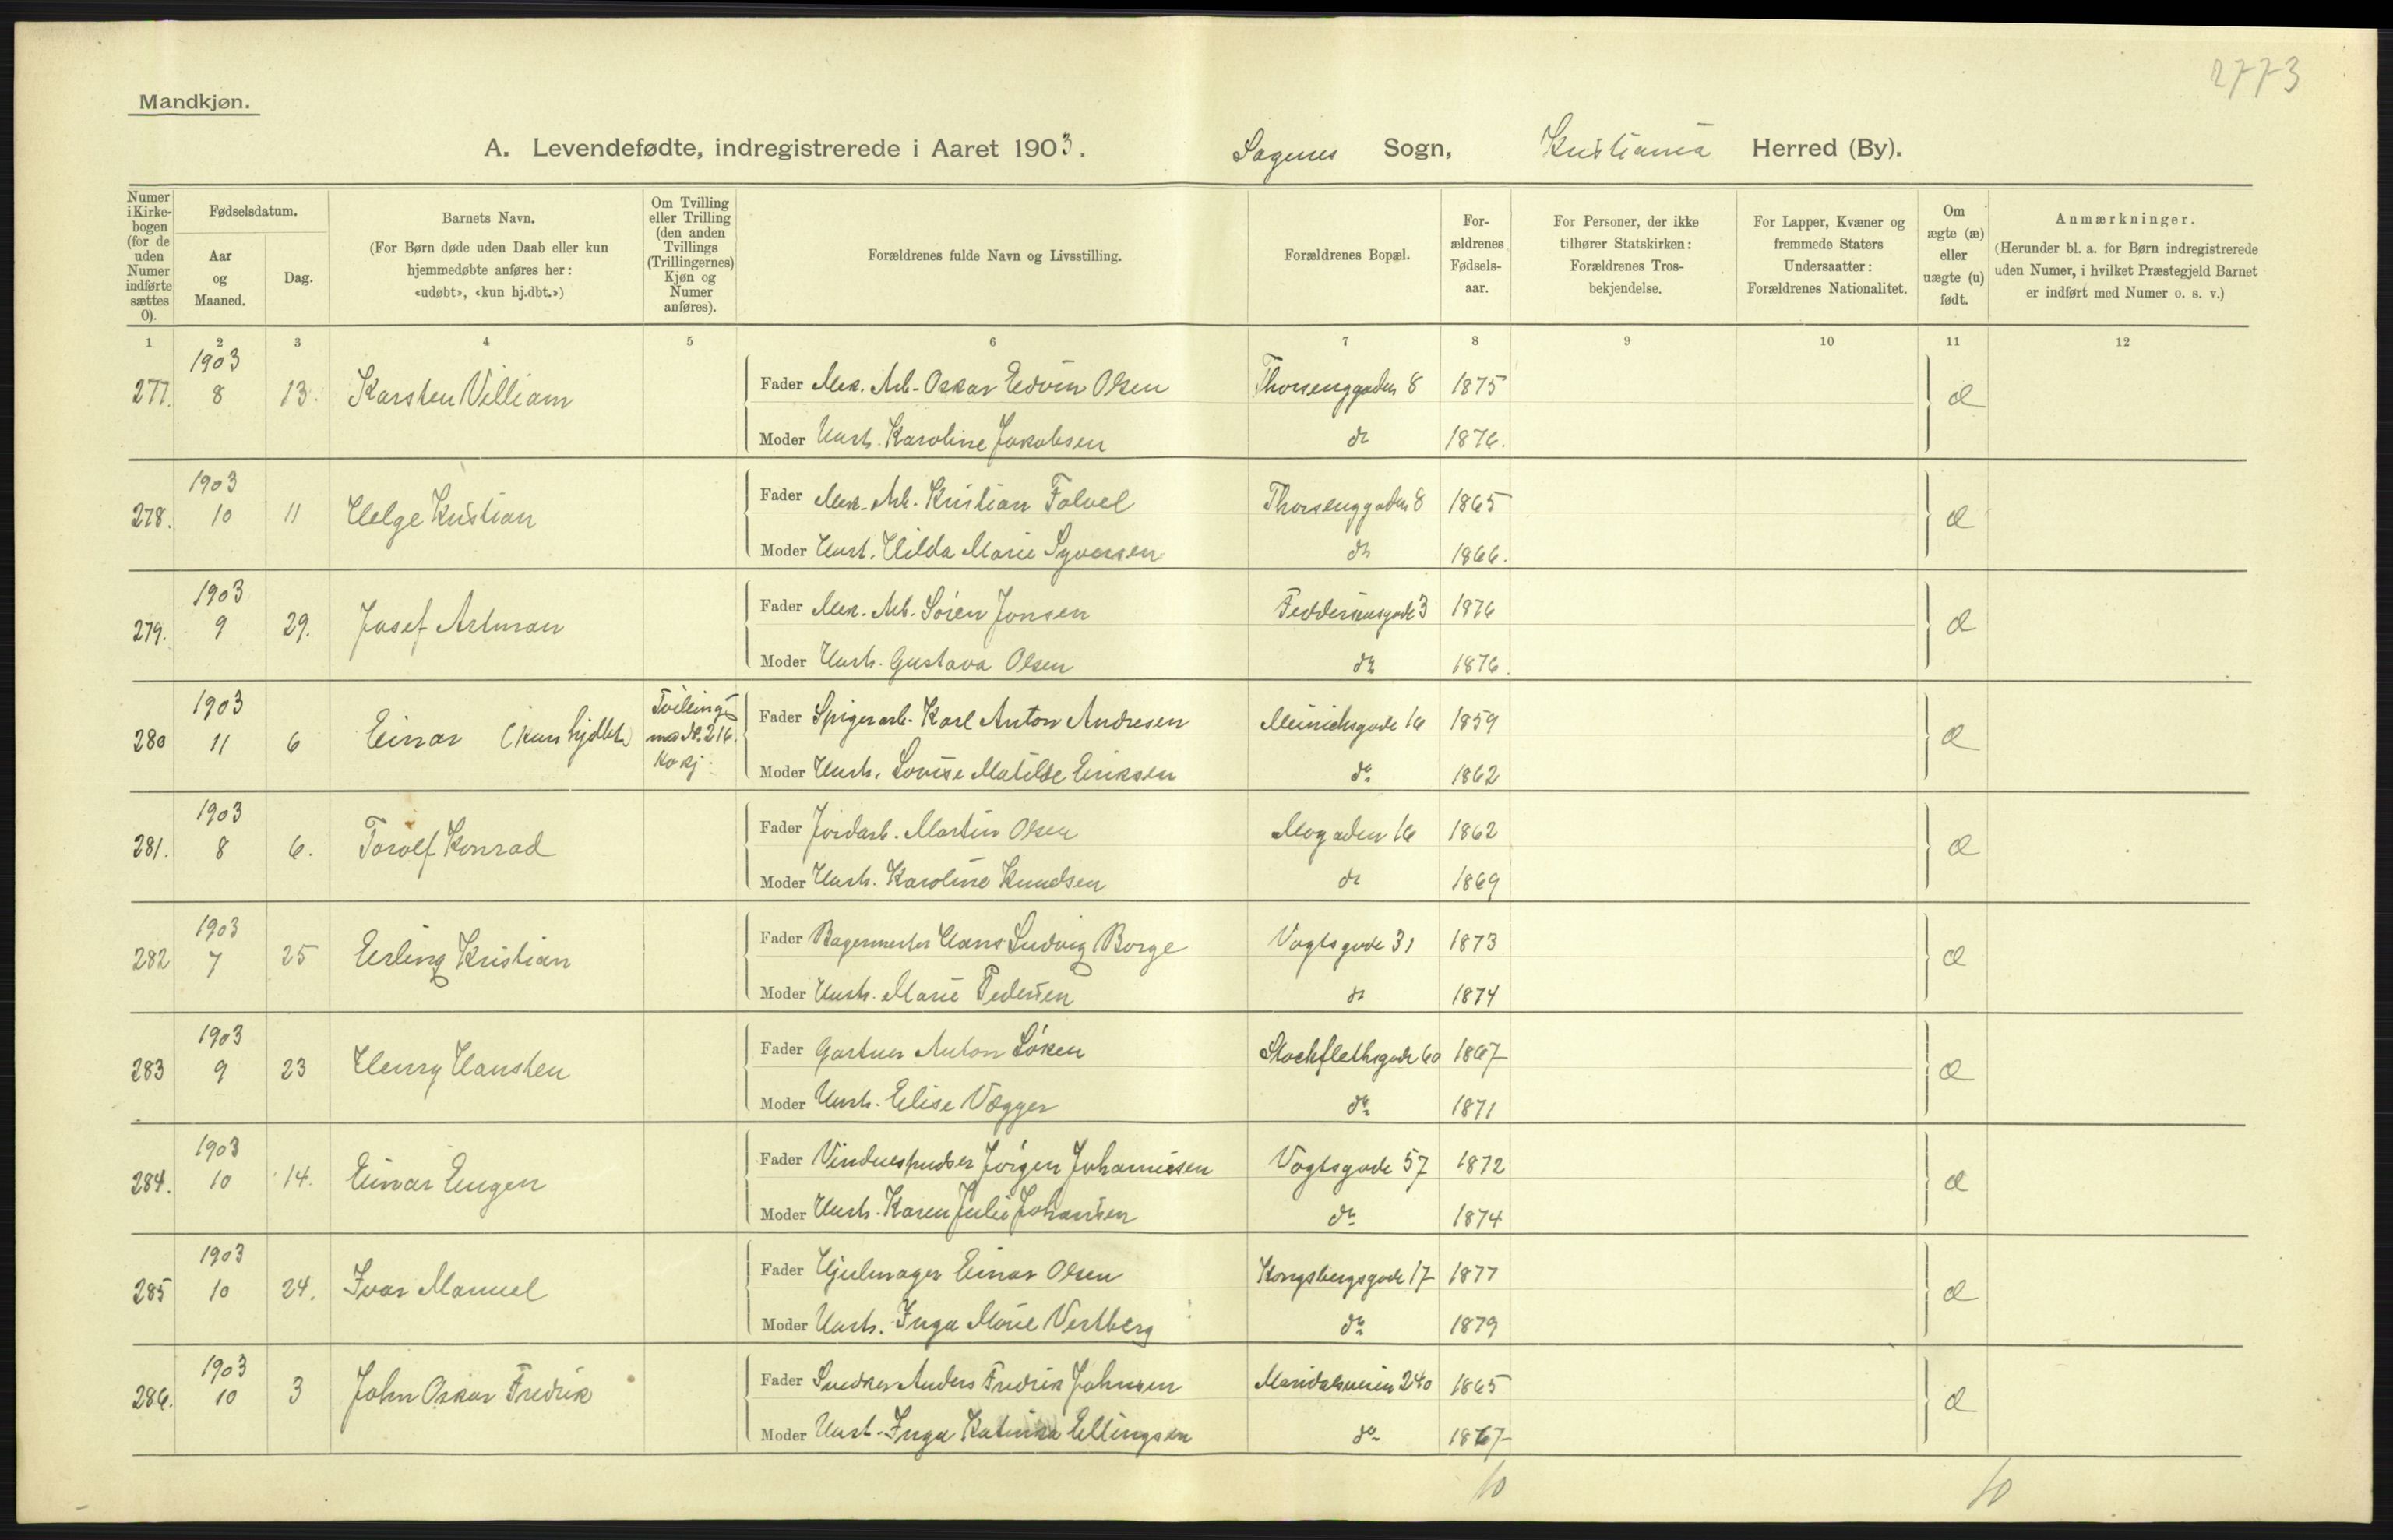 2773
Mandkjøn.
A. Levendefødte, indregistrerede i Aaret 1903. Sagenes Sogn, Kristiania Herred (By).
Numer i Kirke-bogen (for de uden Numer indførte sættes 0).
Fødselsdatum.
Aar og Maaned.
Dag.
Barnets Navn.
(For Børn døde uden Daab eller kun hjemmedøbte anføres her: «udøbt», «kun hj.dbt.»)
Om Tvilling eller Trilling (den anden Tvillings (Trillingernes) Kjøn og Numer anføres).
Forældrenes fulde Navn og Livsstilling.
Forældrenes Bopæl.
For-ældrenes Fødsels-aar.
For Personer, der ikke tilhører Statskirken: Forældrenes Tros-bekjendelse.
For Lapper, Kvæner og fremmede Staters Undersaatter: Forældrenes Nationalitet.
Om ægte (æ) eller uægte (u) født.
Anmærkninger.
(Herunder bl. a. for Børn indregistrerede uden Numer, i hvilket Præstegjeld Barnet er indført med Numer o. s. v.)
1 2 3 4 5 6 7 8 9 10 11 12
277. 1903 8 13. Karsten Villiam Fader Mek. Arb. Oskar Edvin Olsen Thorsenggaden 8 1875 æ
Moder Hust. Karoline Jakobsen do 1876.
278. 1903 10 11 Helge Kristian Fader Mek. Arb. Kristian Folvel Thorsenggaden 8 1865 æ
Moder Hust. Hilda Marie Syversen do 1866.
279. 1903 9 29. Josef Artman Fader Mek. Arb. Sören Jonsen Feddersensgade 3 1876 æ
Moder Hust. Gustava Olsen do 1876.
280 1903 11 6 Einar (kun hjdbt.) Tvilling m. No. 216. Kvkj. Fader Spigerarb. Karl Anton Andresen Meinichsgade 16 1859 æ
Moder Hust. Lovise Matilde Eriksen do 1862
281. 1903 8 6. Torolf Konrad Fader Jordarb. Martin Olsen Mogaden 16 1862 æ
Moder Hust. Karoline Knudsen do 1869
282 1903 7 25 Erling Kristian Fader Bagermester Hans Ludvig Borge Vogtsgade 31 1873 æ
Moder Hust. Marie Pedersen do 1874
283 1903 9 23 Henry Hansten Fader Gartner Anton Löken Stockflethsgade 60 1867 æ
Moder Hust. Elise Vægger do 1871
284. 1903 10 14. Einar Eugen Fader Vinduespudser Jörgen Johannessen Vogtsgade 57 1872 æ
Moder Hust. Karen Julie Johansen do 1874
285 1903 10 24. Ivar Manuel Fader Hjulmager Einar Olsen Kongsbergsgade 17 1877 æ
Moder Hust. Inga Marie Vestberg do 1879
286. 1903 10 3 John Oskar Fredrik Fader Snedker Anders Fredrik Johnsen Maridalsveien 240 1865 æ
Moder Hust. Inga Katinka Ellingsen do 1867
10 10